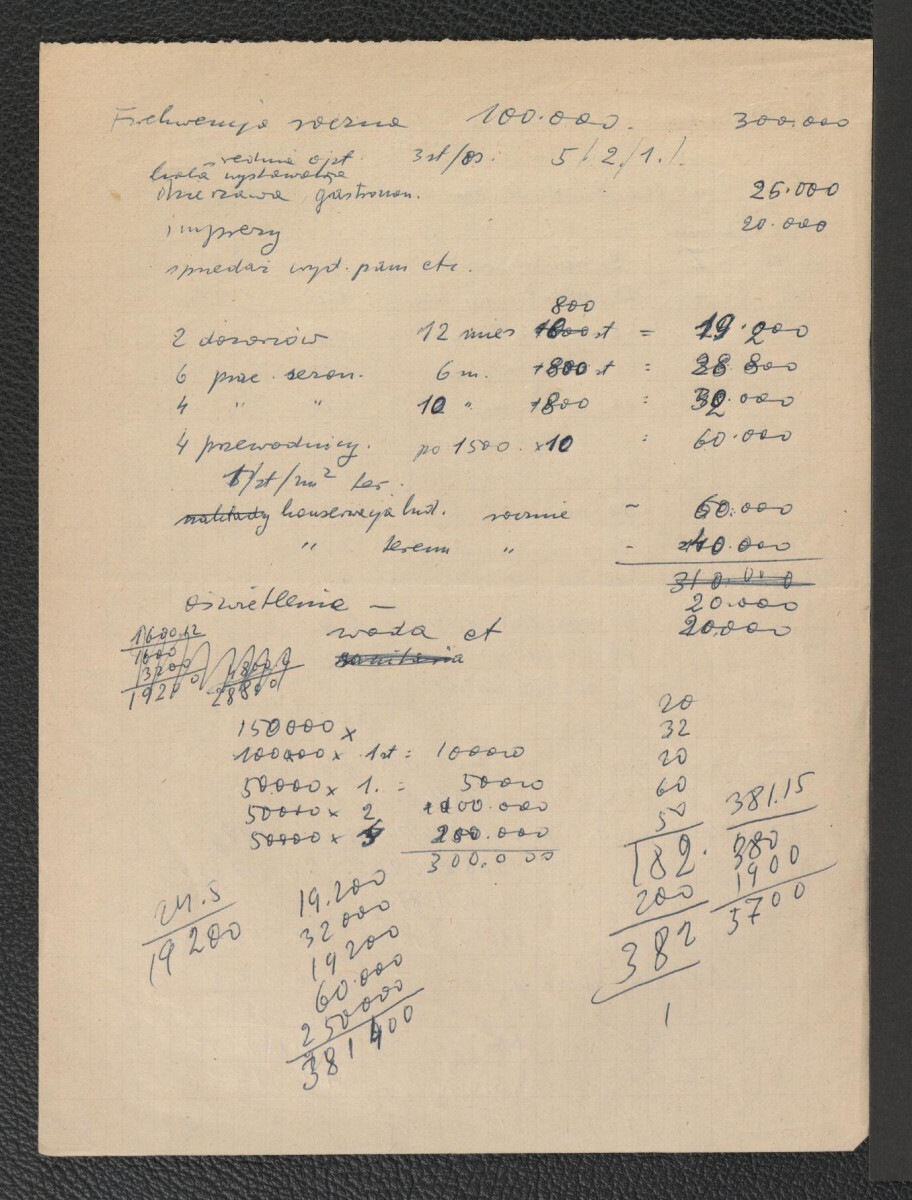 Frekwencja roczna 100.000. 300.000
średnia opt. 3zł/os. 5/2/1./.
hala wystawowa
dzierżawa gastronom. 25.000
imprezy 20.000
sprzedaż wyd. pam etc.
800
2 dozorców 12 mies zł = 19.200
6 prac. sezon. 6 m. 800 zł = 28 800
4 " " 10 " 800 = 32.000
4 przewodnicy. po 1500. x10 = 60.000
1/zł/m² ter.
nakłady konserwacja bud. rocznie - 60.000
" terenu " - 40.000
310.000
oświetlenie - 20.000
woda et 20.000
sanitaria
1600.12
1600
3200
19200
4800 6
28800
150000 x
100000 x 1zł = 10000
50000 x 1. = 50000
50000 x 2 100.000
50000 x 5 200.000
300.000
20
32
20
60
50
182.
200
382
1
381.15
380
1900
5700
24.5
19200
19.200
32000
19200
60.000
250000
381400